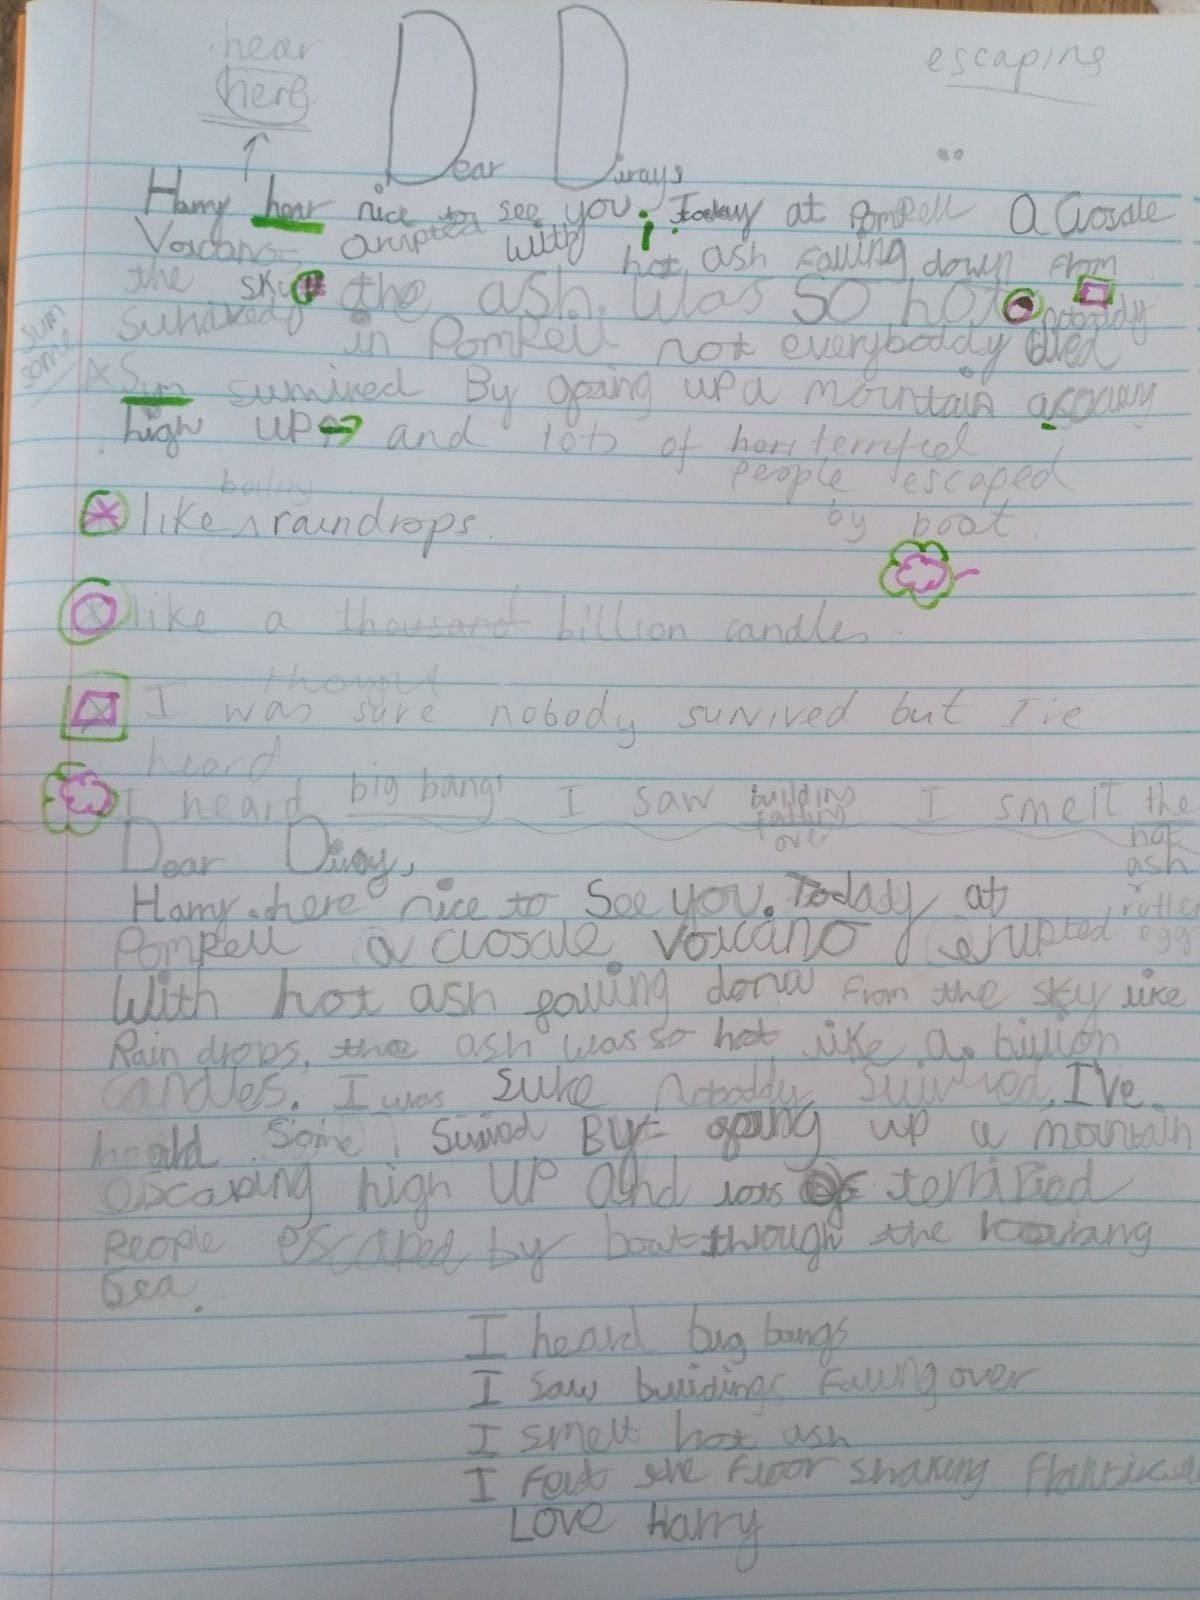 hear
here
escaping
Dear Dirays
Harry hear nice to see you. Today at Pompeii a Closale
Volcano arupted with hot ash falling down from
the sky the ash was so hot nobody
in Pompeii not everyboddy died
sum
some
Sum survived By going up a mountain
high up and lots of terrified
people escaped
by boat.
boiling
like raindrops.
like a thousand billion candles.
thought
I was sure nobody survived but I've
heard
I heard big bangs I saw building falling over I smelt the
hot
ash
rotten
egg
Dear Diray,
Harry here nice to See you. Today at
Pompeii a closale Volcano erupted
With hot ash falling donw from the sky like
Rain drops. the ash was so hot like a billion
candles. I was sure Nobody I've
heard Some By going up a
escaping high up and lots of terrified
People escaped by boat through the
Sea.
I heard big bangs
I saw buildings Falling over
I smelt hot ash
I Felt the Floor shaking
Love Harry